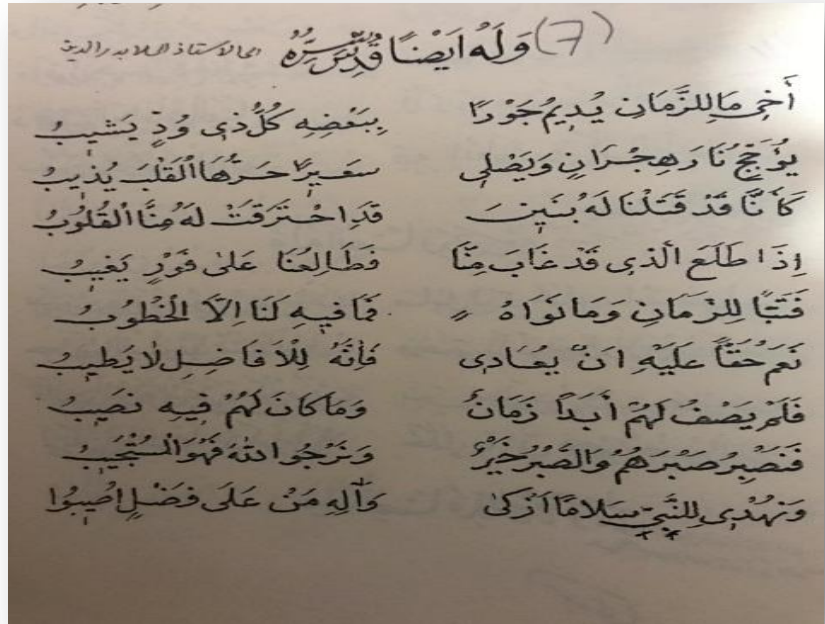 (7) وَلَهُ اَيْضًا قُدِّسَ سِرُّهُ الى الاستاذ الملا بدرالدين
أَخِى مَا لِلزَّمَانِ يُدِيمُ جَوْرًا بِبَعْضِهِ كُلُّ ذِى وُدٍّ يَشِيبُ
يُؤَجِّجُ نَارَ هِجْرَانٍ وَيَصْلِى سَعِيرًا حَرُّهَا الْقَلْبَ يُذِيبُ
كَأَنَّا قَدْ قَتَلْنَا لَهُ بَنِينَ قَدِ احْتَرَقَتْ لَهُ مِنَّا الْقُلُوبُ
اِذَا طَلَعَ الَّذِى قَدْ غَابَ مِنَّا فَطَالِعُنَا عَلَى فَوْرٍ يَغِيبُ
فَتَبًّا لِلزَّمَانِ وَمَا نَوَاهُ فَمَا فِيهِ لَنَا اِلَّا الْخُطُوبُ
نَعَمْ حَقًّا عَلَيْهِ اَنْ يُعَادِى فَاِنَّهُ لِلْاَفَاضِلِ لَا يَطِيبُ
فَلَمْ يَصْفُ لَهُمْ أَبَدًا زَمَانٌ وَمَا كَانَ لَهُمْ فِيهِ نَصِيبُ
فَنَصْبِرُ صَبْرَهُمْ وَالصَّبْرُ خَيْرٌ وَنَرْجُوا اللهَ فَهُوَ الْمُسْتَجِيبُ
وَنُهْدِى لِلنَّبِىِّ سَلَامًا اَزْكَى وَآلِهِ مَنْ عَلَى فَضْلٍ اُصِيبُوا